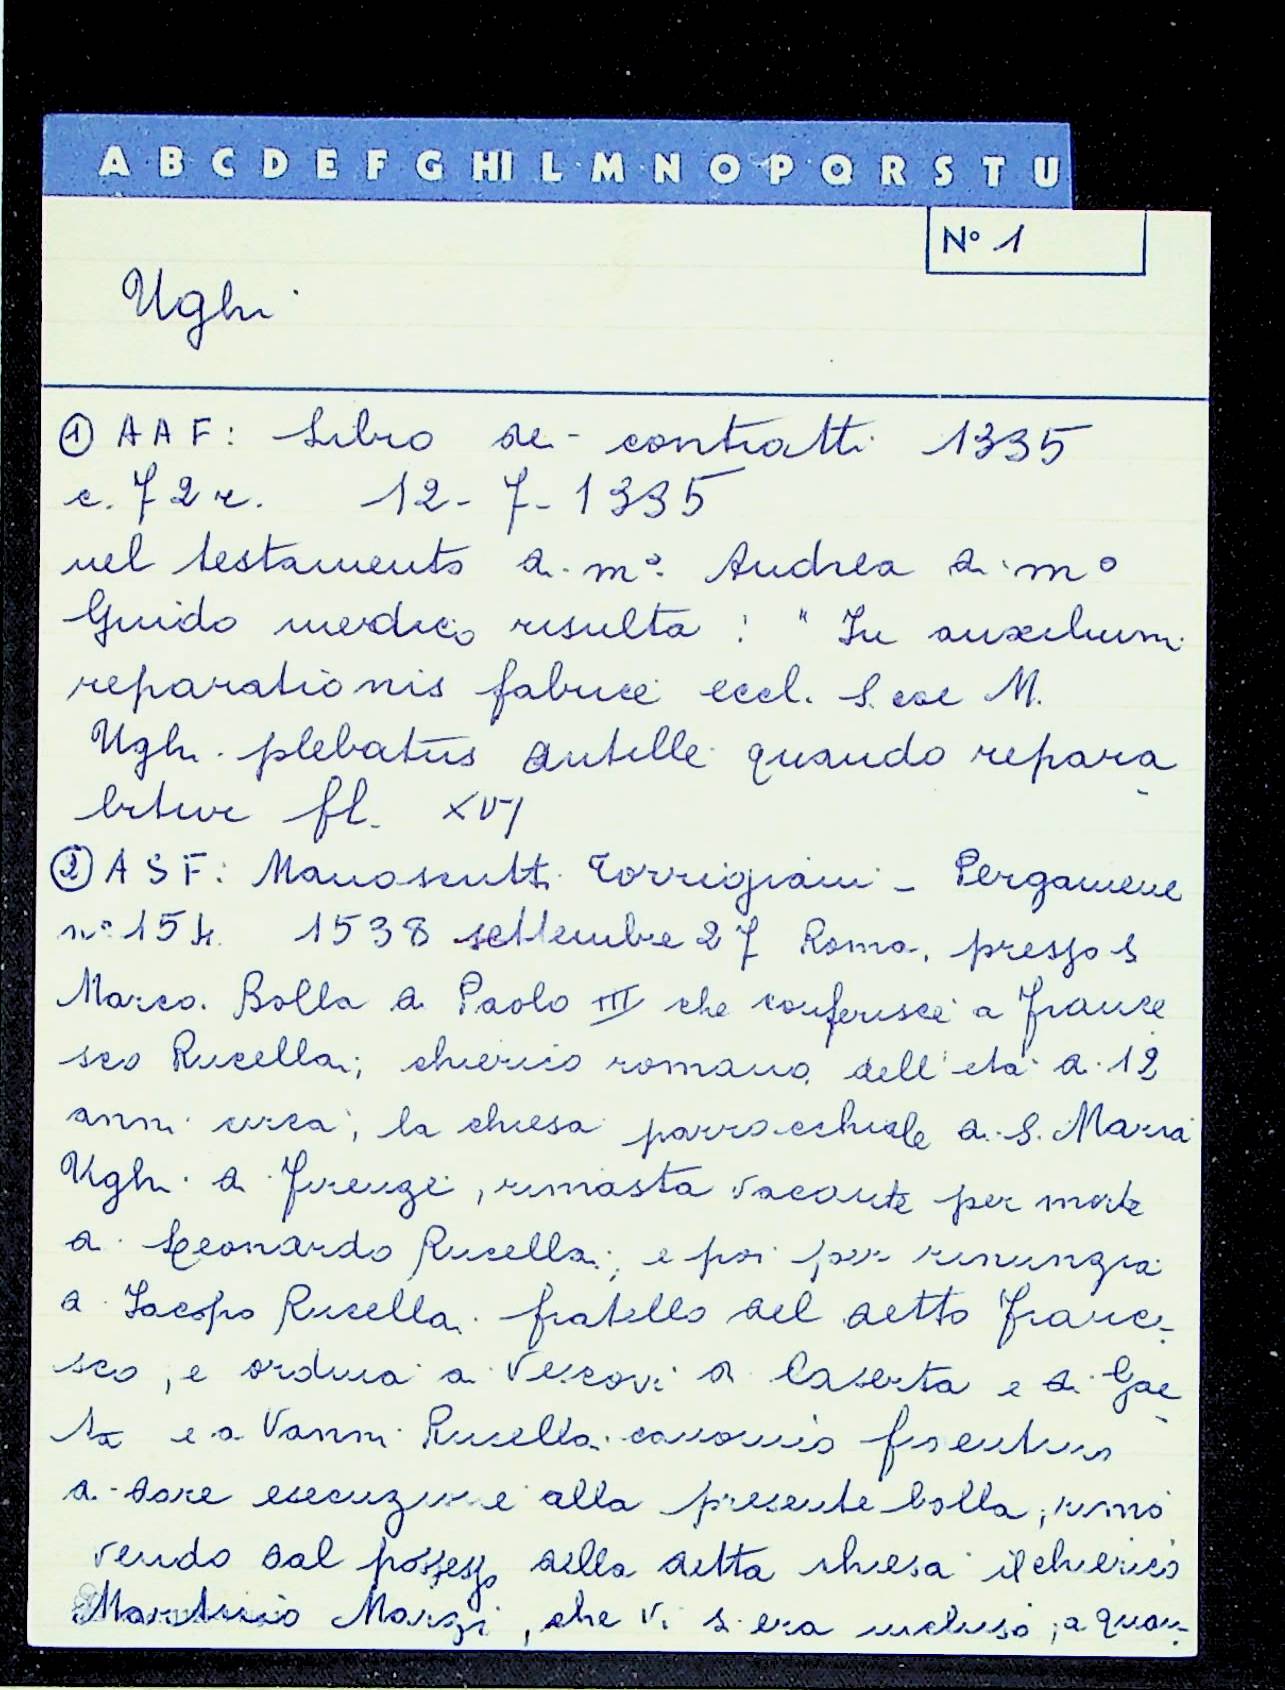 A B C D E F G HI L M N O P Q R S T U
N° 1
Ughi
① AAF: Libro dei contratti 1335
c. 72 r. 12-7-1335
nel testamento di m°. Andrea di m°
Guido medico risulta: "In auxilium
reparationis fabrice eccl. S.
M.
Ughi plebatus Antille quando repara
bitur fl. XVI
② ASF: Manoscritti Torrigiani - Pergamene
n° 154 1538 settembre 27 Roma, presso S
Marco. Bolla di Paolo III che conferisce a France
sco Rucellai, chierico romano dell'età di 12
anni circa, la chiesa parrocchiale di S. Maria
Ughi di Firenze, rimasta vacante per morte
di Leonardo Rucellai, e poi per rinunzia
di Iacopo Rucellai fratello del detto Franc-
sco, e ordina ai Vescovi di Caserta e di Gae
ta e a Vanni Rucellai canonico fiorentino
di dare esecuzione alla presente bolla, rimo
vendo dal possesso della detta chiesa il chierico
Marzi, che vi s'era incluso, a quan-